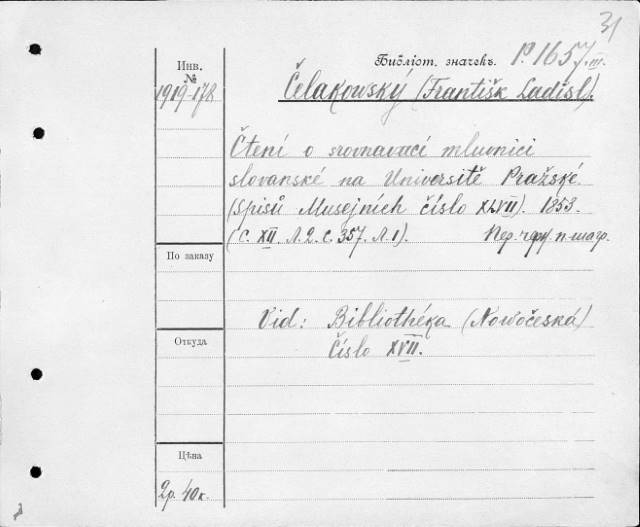 31
Инв. №
Библіот. значекъ. P. 1657. III.
1919-178
Čelakowský (Františk Ladisl).
Čtení o srovnavací mluvnici
slovanské na Universitě Pražské.
(Spisů Musejních číslo XLVII). 1853.
(C. XII. Л. 2. С. 357. Л. 1). Пер.
По заказу
Vid: Bibliothéka (Nowočeská)
Číslo XVII.
Откуда
Цѣна
2р. 40к.